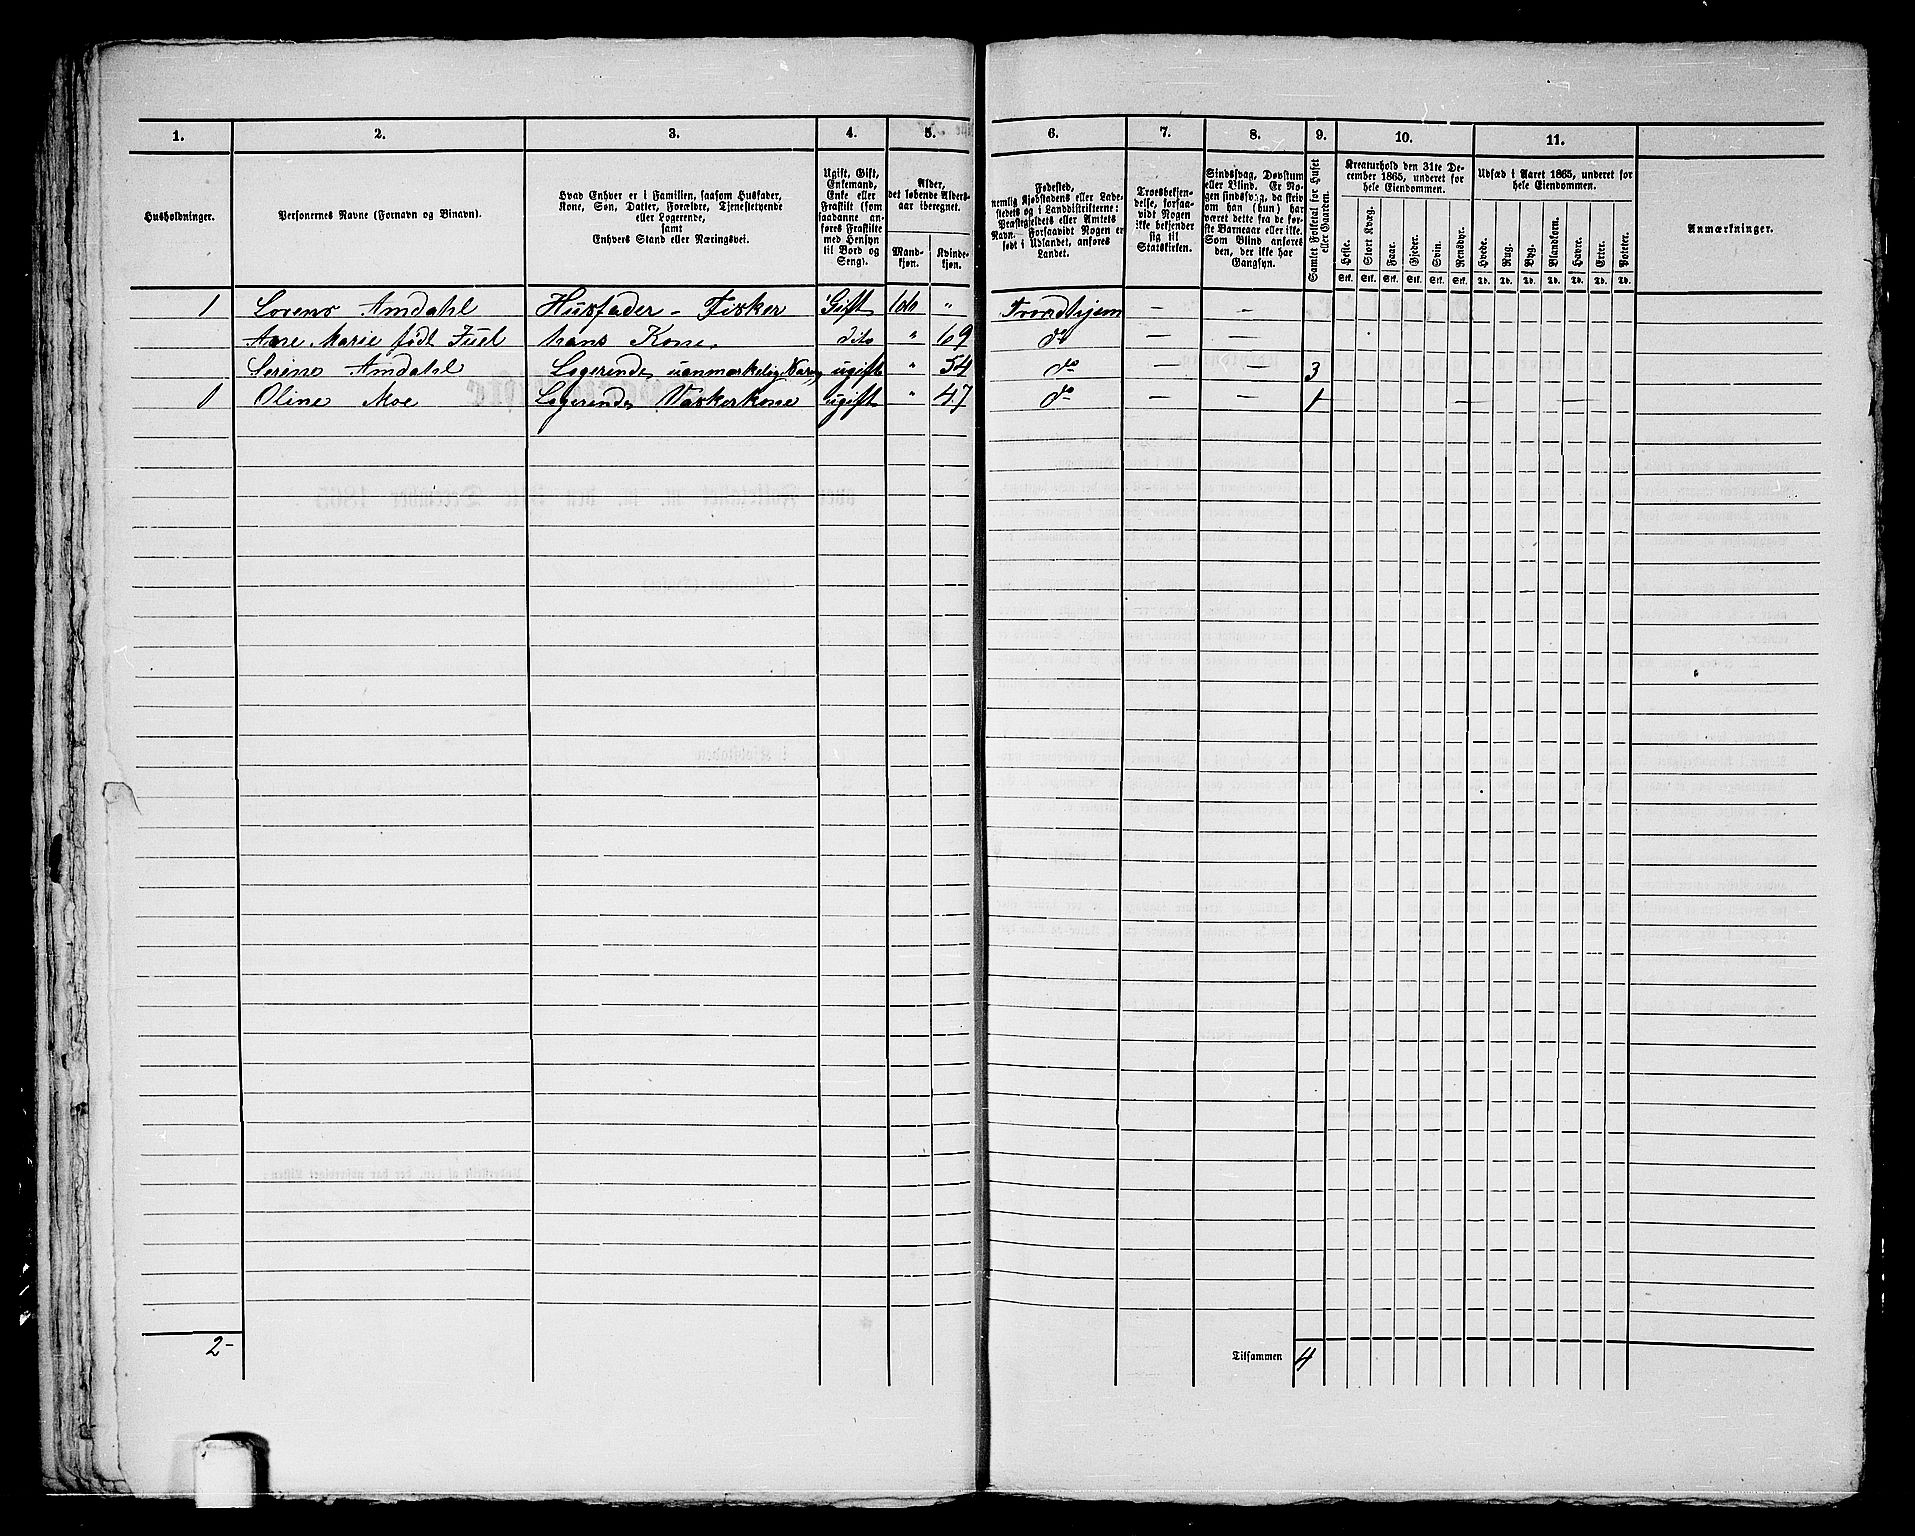 1. 2. 3. 4. 5. 6. 7. 8. 9. 10. 11.
Husholdninger.
Personernes Navne (Fornavn og Binavn).
Hvad Enhver er i Familien, saasom Husfader,
Kone, Søn, Datter, Forældre, Tjenestetyende
eller Logerende,
samt
Enhvers Stand eller Næringsvei.
Ugift, Gift,
Enkemand,
Enke eller
Fraskilt (som
saadanne an-
føres Fraskilte
med Hensyn
til Bord og
Seng).
Alder,
det løbende Alders-
aar iberegnet.
Mand-
kjøn.
Kvinde-
kjøn.
Fødested,
nemlig Kjøbstadens eller Lade-
stedets og i Landdistrikterne:
Præstegjeldets eller Amtets
Navn. Forsaavidt Nogen er
født i Udlandet, anføres
Landet.
Troesbekjen-
delse, forsaa-
vidt Nogen
ikke bekjender
sig til
Statskirken.
Sindssvag, Døvstum
eller Blind. Er No-
gen sindssvag, da skriv
om han (hun) har
været dette fra de før-
ste Barneaar eller ikke.
Som Blind anføres
den, der ikke har
Gangsyn.
Samlet Folketal for Huset
eller Gaarden.
Kreaturhold den 31te De-
cember 1865, underet for
hele Eiendommen.
Heste. Stort Kvæg. Faar. Gjeder. Svin. Rensdyr.
Stk. Stk. Stk. Stk. Stk. Stk.
Udsæd i Aaret 1865, underet for
hele Eiendommen.
Hvede. Rug. Byg. Blandkorn. Havre. Erter. Poteter.
Td. Td. Td. Td. Td. Td. Td.
Anmærkninger.
1 Lorens Amdahl Husfader - Fisker Gift 66 " Trondhjem — —
Ane Marie født Juel hans Kone dito " 69 do — —
Serine Amdahl Logerende ugift " 54 do — — 3
1 Oline Moe Logerende Vaskerkone ugift " 47 do — — 1 — —
2-
Tilsammen 4